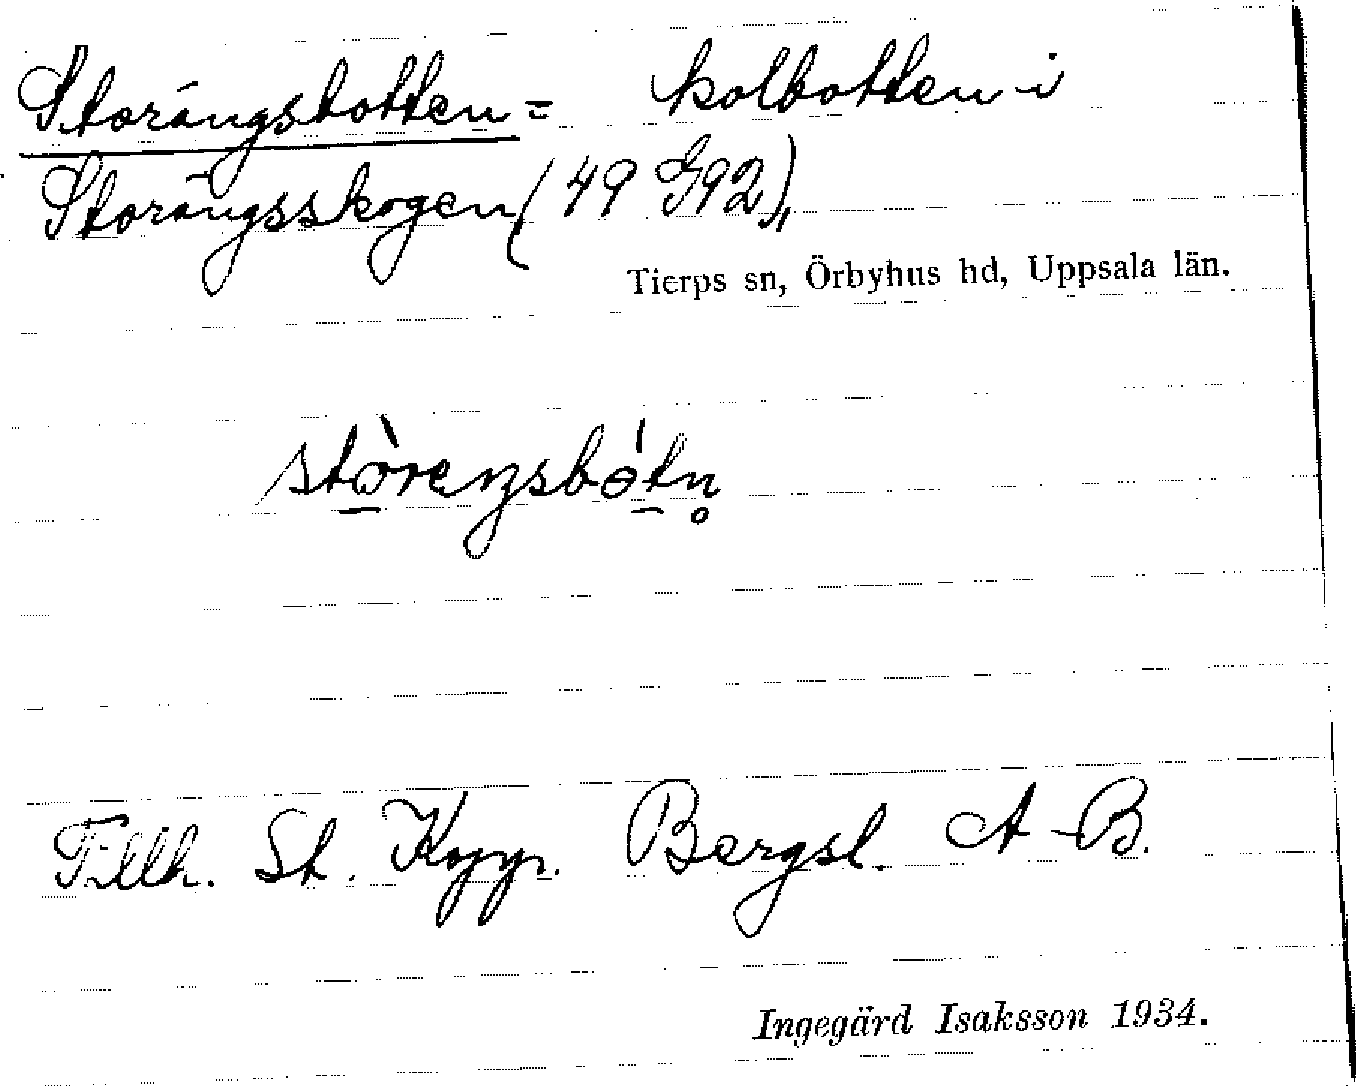 Storängsbotten = kolbotten i
Storängsskogen (49 G92),
Tierps sn, Örbyhus hd, Uppsala län.
stò̱reŋsbó̱tn̥
Tillh. St. Kopp. Bergsl. A-B.
Ingegärd Isaksson 1934.